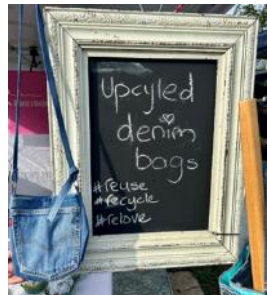 Upcyled
denim
bags
#reuse
#recycle
#relove